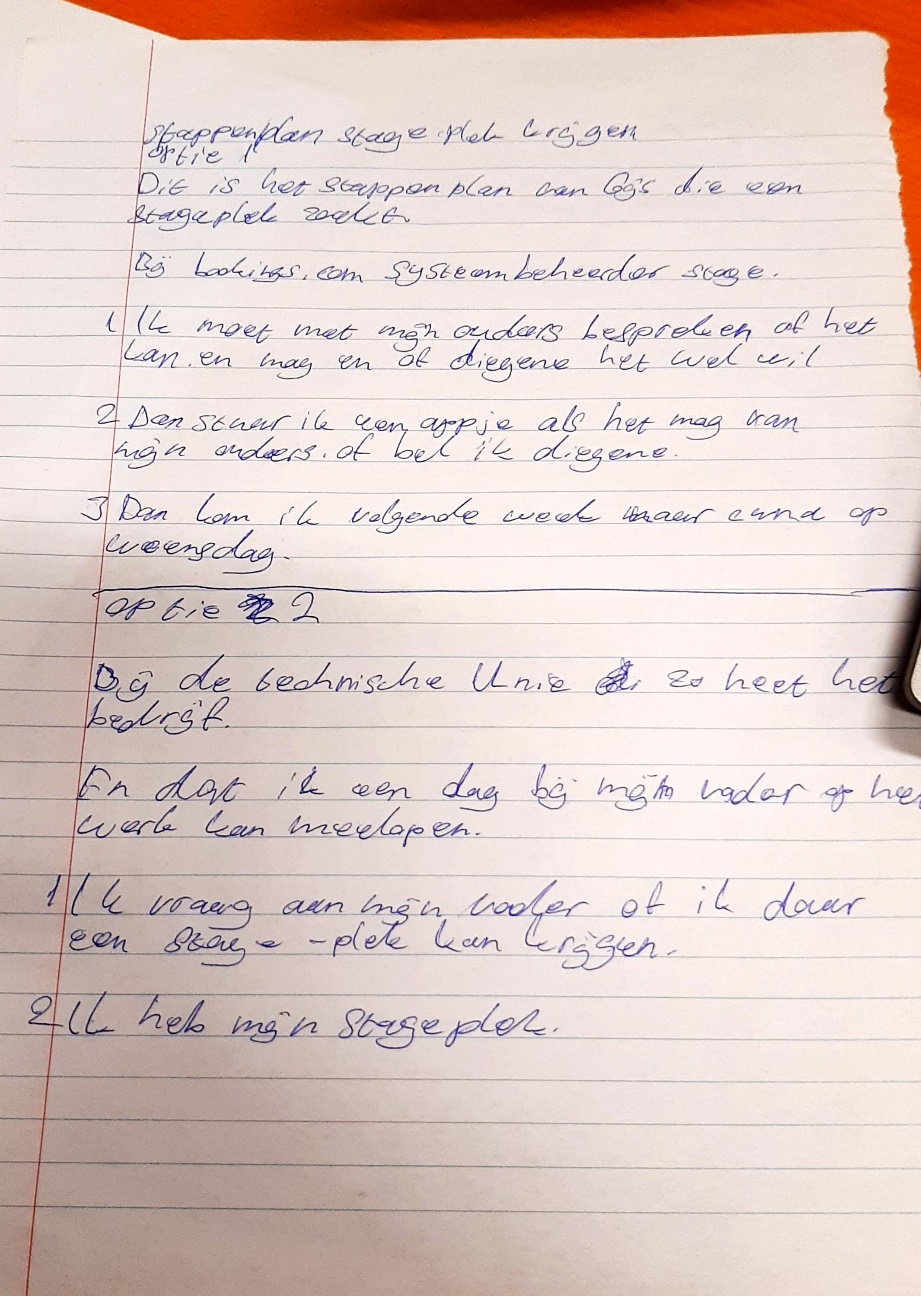 stappenplan stage-plek krijgen
optie 1
Dit is het stappenplan van Gijs die een
stageplek zoekt.
Bij bookings.com systeembeheerder stage.
1 Ik moet met mijn ouders bespreken of het
kan en mag en of diegene het wel wil
2 Dan stuur ik een appje als het mag van
mijn ouders. of bel ik diegene.
3 Dan kom ik volgende week maar op
woensdag.
optie 2
Bij de technische Unie zo heet het
bedrijf.
En dat ik een dag bij mijn vader op het
werk kan meelopen.
1 Ik vraag aan mijn vader of ik daar
een stage-plek kan krijgen.
2 Ik heb mijn stageplek.